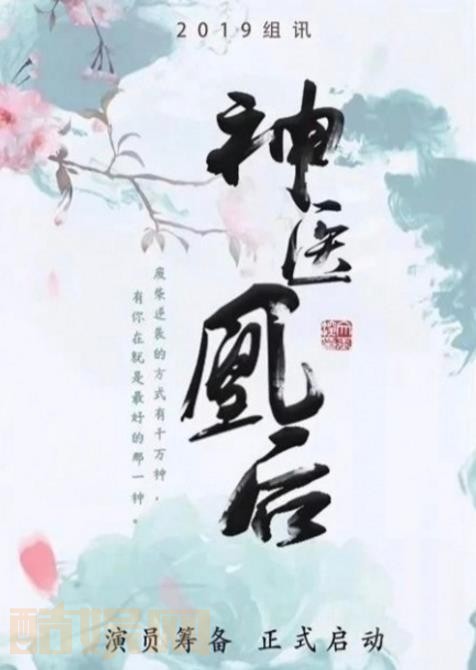 2019组讯
神医凰后
废柴逆袭的方式有千万种，
有你在就是最好的那一种。
演员筹备 正式启动